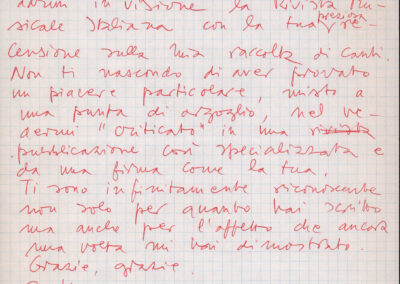 in visione la Rivista Mu-
sicale Italiana con la tua preziosa re-
censione sulla mia raccolta di canti.
Non ti nascondo di aver provato
un piacere particolare, misto a
una punta di orgoglio, nel ve-
dermi "criticato" in una rivista
pubblicazione così specializzata e
da una firma come la tua.
Ti sono infinitamente riconoscente
non solo per quanto hai scritto
ma anche per l'affetto che ancora
una volta mi hai dimostrato.
Grazie, grazie.